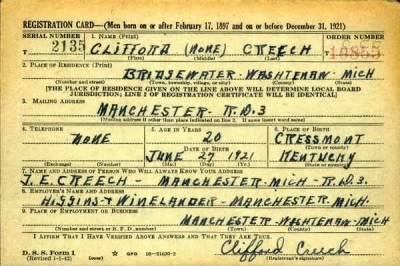 REGISTRATION CARD—(Men born on or after February 17, 1897 and on or before December 31, 1921)
SERIAL NUMBER 1. NAME (Print) ORDER NUMBER
2135 CLIFFORD (NONE) CREECH 10855
(First) (Middle) (Last)
2. PLACE OF RESIDENCE (Print)
BRIDGEWATER-WASHTENAW-MICH
(Number and street) (Town, township, village, or city) (County) (State)
[THE PLACE OF RESIDENCE GIVEN ON THE LINE ABOVE WILL DETERMINE LOCAL BOARD
JURISDICTION; LINE 2 OF REGISTRATION CERTIFICATE WILL BE IDENTICAL]
3. MAILING ADDRESS
MANCHESTER R.D.3
[Mailing address if other than place indicated on line 2. If same insert word same]
4. TELEPHONE 5. AGE IN YEARS 6. PLACE OF BIRTH
NONE 20 CRESSMONT
DATE OF BIRTH (Town or county)
JUNE 27 1921 KENTUCKY
(Exchange) (Number) (Mo.) (Day) (Yr.) (State or country)
7. NAME AND ADDRESS OF PERSON WHO WILL ALWAYS KNOW YOUR ADDRESS
J.E. CREECH MANCHESTER-MICH R.D.3.
8. EMPLOYER'S NAME AND ADDRESS
HIGGINS + WINELANDER-MANCHESTER-MICH.
9. PLACE OF EMPLOYMENT OR BUSINESS
MANCHESTER-WASHTENAW-MICH
(Number and street or R. F. D. number) (Town) (County) (State)
I AFFIRM THAT I HAVE VERIFIED ABOVE ANSWERS AND THAT THEY ARE TRUE.
Clifford Creech
D. S. S. Form 1 GPO 16—21630-2 (Registrant's signature)
(Revised 1-1-42)